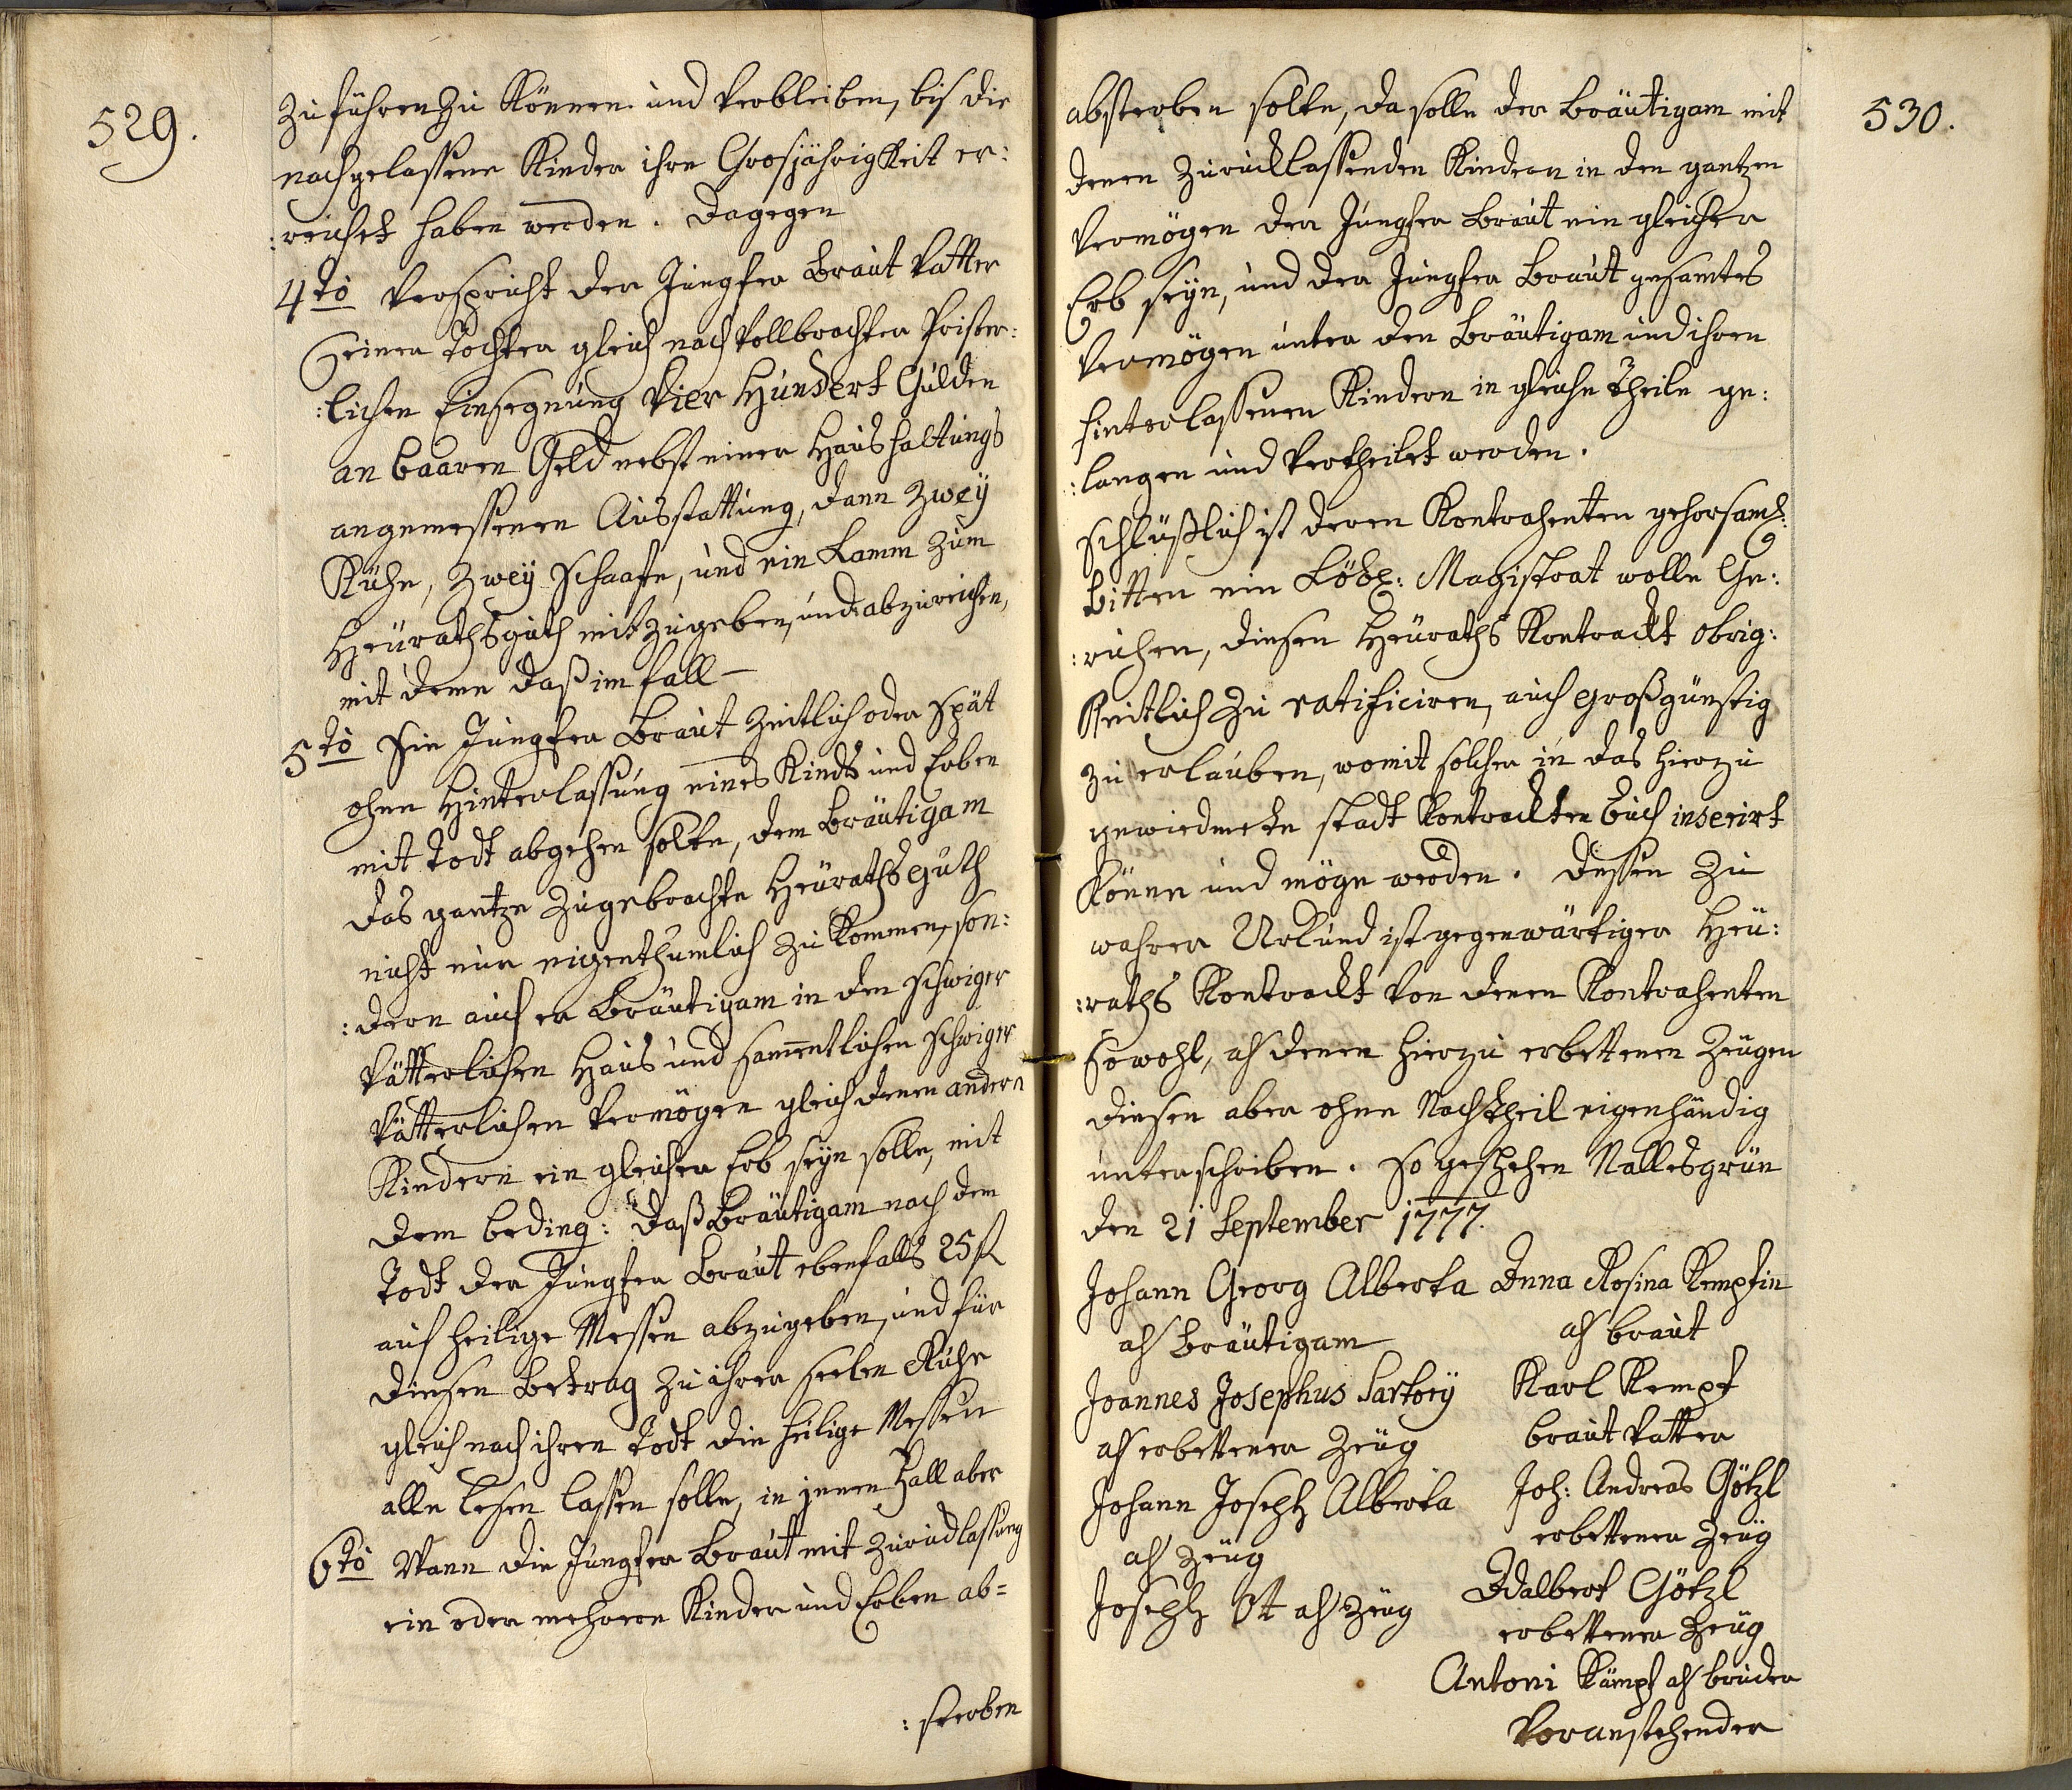 529.
zu führen zu Können und verbleiben, bis die
nachgelassene Kinder ihre Grosjährigkeit er:
:reichet haben werden. Dagegen
4to verspricht der Jungfer Braut Vatter
seiner Tochter gleich nach vollbrachter Prister:
:lichen Einsegnung Vier Hundert Gulden
an baaren Geld nebst einer Haushaltungs
angemessenen Ausstattung, dann zwey
Kühe, zwey Schaafe, und ein Lamm zum
Heüraths guth mitzugeben, und abzureichen,
mit deme daß im fall –
5to die Jungfer Braut zeitlich oder spät
ohne Hinterlassung eines Kinds und Erben
mit Todt abgehen solte, dem Bräutigam
das gantze zugebrachte Heüraths guth
nicht nur eigenthumlich zu Kommen, son:
:dern auch er Bräutigam in den schwiger
Vätterlichen Haus und sam̄entlichen schwiger
Vätterlichen Vermögen gleich denen andern
Kindern ein gleicher Erb seyn solle, mit
dem beding: daß Bräutigam nach dem
Todt der Jungfer Braut ebenfalls 25 fl
auf heilige Messen abzugeben, und für
diesen Betrag zu ihrer seelen Ruhe
gleich nach ihren Todt die heilige Messen
alle lesen lassen solle, in jenen Fall aber
6to Wann die Jungfer Braut mit Zurücklassung
ein oder mehrere Kinder und Erben ab=
:sterben
530.
absterben solte, da solle der Bräutigam mit
denen zurücklassenden Kindern in den gantzen
Vermögen der Jungfer Braut ein gleicher
Erb seyn, und der Jungfer Braut gesamtes
Vermögen unter den Bräutigam und ihren
hinterlassenen Kindern in gleiche Theile ge:
:langen und vertheilet werden.
Schlüßlich ist deren Kontrahenten gehorsames:
bitten ein Löbl: Magistrat wolle Ge:
:ruhen, diesen Heüraths Kontrackt obrig:
Keitlich zu ratificiren, auch großgünstig
zu erlauben, womit solcher in das hierzu
gewiedmete stadt Kontrackten buch inserirt
Könne und möge werden. Dessen zu
wahrer Urkund ist gegenwärtiger Heü:
:raths Kontrackt von denen Kontrahenten
sowohl, als denen hierzu erbettenen Zeugen
diesen aber ohne Nachtheil eigenhändig
unterschriben. So geschehen Nallesgrün
den 21 September 1777.
Johann Georg Alberta
als Bräutigam
Joannes Josephus Sartory
als erbettener Zeüg
Johann Joseph Alberta
als Zeüg
Joseph Ot als Zeüg
Anna Rosina Kempfin
als braut
Karl Kempf
braut Vatter
Joh: Andreas Götzl
erbettener Zeüg
Adalbert Götzl
erbettener Zeüg
Antoni Kämpf als bruder
Voranstehender